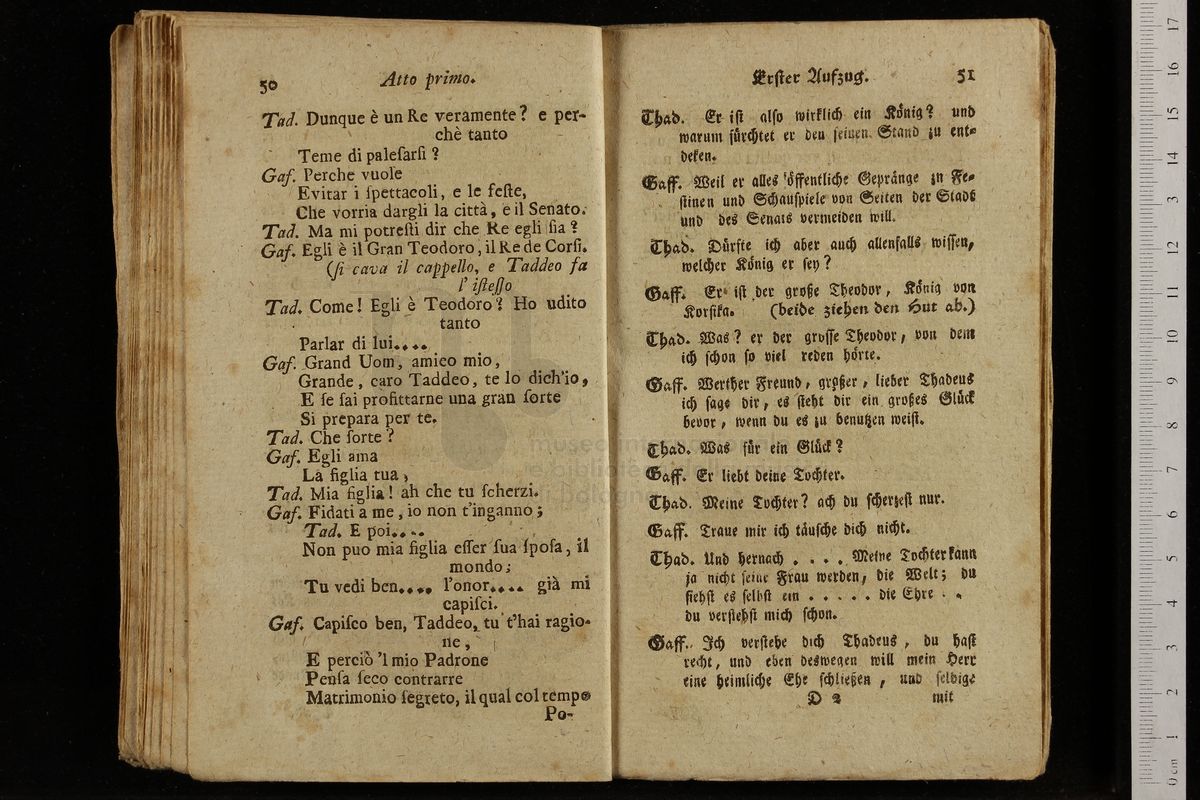 50 Atto primo.
Tad. Dunque è un Re veramente? e per-
chè tanto
Teme di paleſarſi?
Gaf. Perche vuole
Evitar i ſpettacoli, e le feſte,
Che vorria dargli la città, e il Senato.
Tad. Ma mi potreſti dir che Re egli ſia?
Gaf. Egli è il Gran Teodoro, il Re de Corſi.
(ſi cava il cappello, e Taddeo fa
l' iſteſſo
Tad. Come! Egli è Teodoro? Ho udito
tanto
Parlar di lui....
Gaf. Grand Uom, amico mio,
Grande, caro Taddeo, te lo dich'io,
E ſe ſai profittarne una gran ſorte
Si prepara per te.
Tad. Che ſorte?
Gaf. Egli ama
La figlia tua,
Tad. Mia figlia! ah che tu ſcherzi.
Gaf. Fidati a me, io non t'inganno;
Tad. E poi....
Non puo mia figlia eſſer ſua ſpoſa, il
mondo;
Tu vedi ben.... l'onor.... già mi
capiſci.
Gaf. Capiſco ben, Taddeo, tu t'hai ragio-
ne,
E perciò 'l mio Padrone
Penſa ſeco contrarre
Matrimonio ſegreto, il qual col tempo
Po-
Erſter Aufzug. 51
Thad. Er iſt alſo wirklich ein König? und
warum fürchtet er den ſeinen Stand zu ent-
deken.
Gaff. Weil er alles öffentliche Gepränge in Fe-
ſtinen und Schauſpiele von Seiten der Stadt
und des Senats vermeiden will.
Thad. Dürfte ich aber auch allenfalls wiſſen,
welcher König er ſey?
Gaff. Er iſt der große Theodor, König von
Korſika. (beide ziehen den Hut ab.)
Thad. Was? er der groſſe Theodor, von dem
ich ſchon ſo viel reden hörte.
Gaff. Werther Freund, großer, lieber Thadeus
ich ſage dir, es ſteht dir ein großes Glück
bevor, wenn du es zu benutzen weiſt.
Thad. Was für ein Glück?
Gaff. Er liebt deine Tochter.
Thad. Meine Tochter? ach du ſcherzeſt nur.
Gaff. Traue mir ich täuſche dich nicht.
Thad. Und hernach . . . . Meine Tochter kann
ja nicht ſeine Frau werden, die Welt; du
ſiehſt es ſelbſt ein . . . . . die Ehre . .
du verſtehſt mich ſchon.
Gaff. Ich verſtehe dich Thadeus, du haſt
recht, und eben deswegen will mein Herr
eine heimliche Ehe ſchließen, und ſelbige
D 2 mit